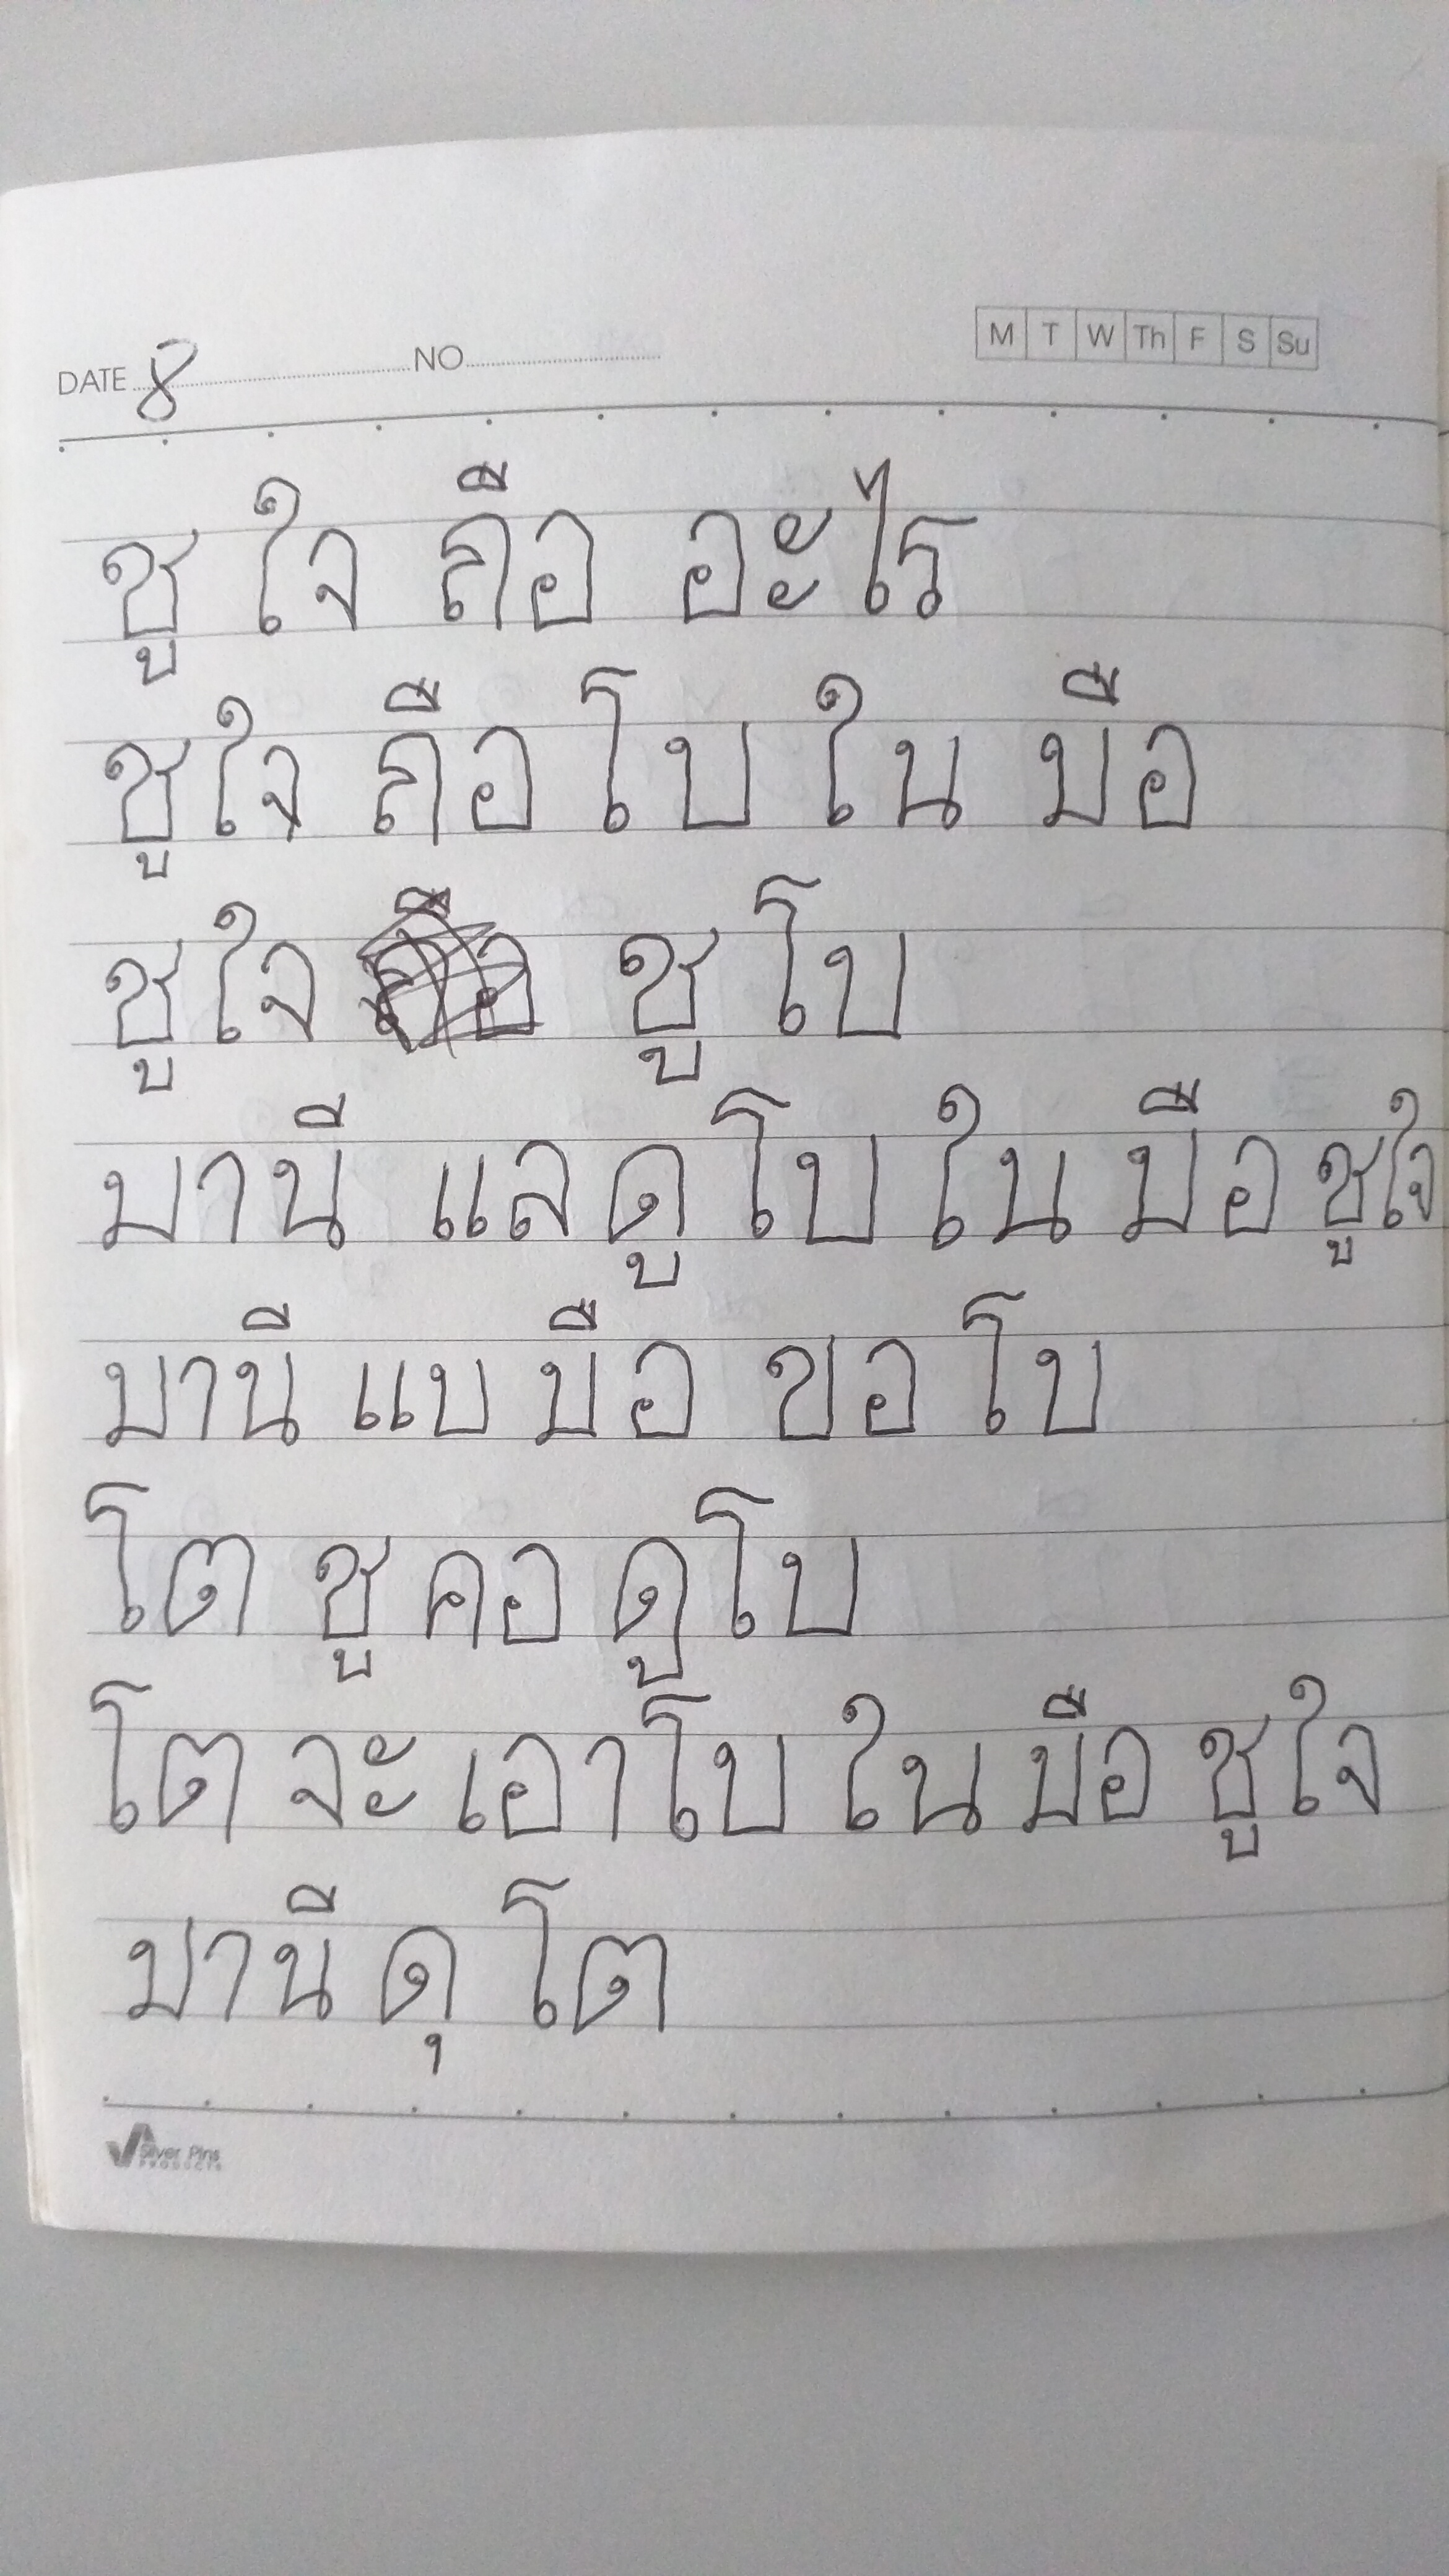 DATE 8 NO M T W Th F S Su
ชู ใจ ถือ อะไร
ชู ใจ ถือ โบ ใน มือ
ชู ใจ ชู โบ
มานี แล ดู โบ ใน มือ ชูใจ
มานี แบ มือ ขอ โบ
โต ชู คอ ดู โบ
โต จะ เอา โบ ใน มือ ชู ใจ
มานี ดุ โต
Silver Pins
PRODUCTS